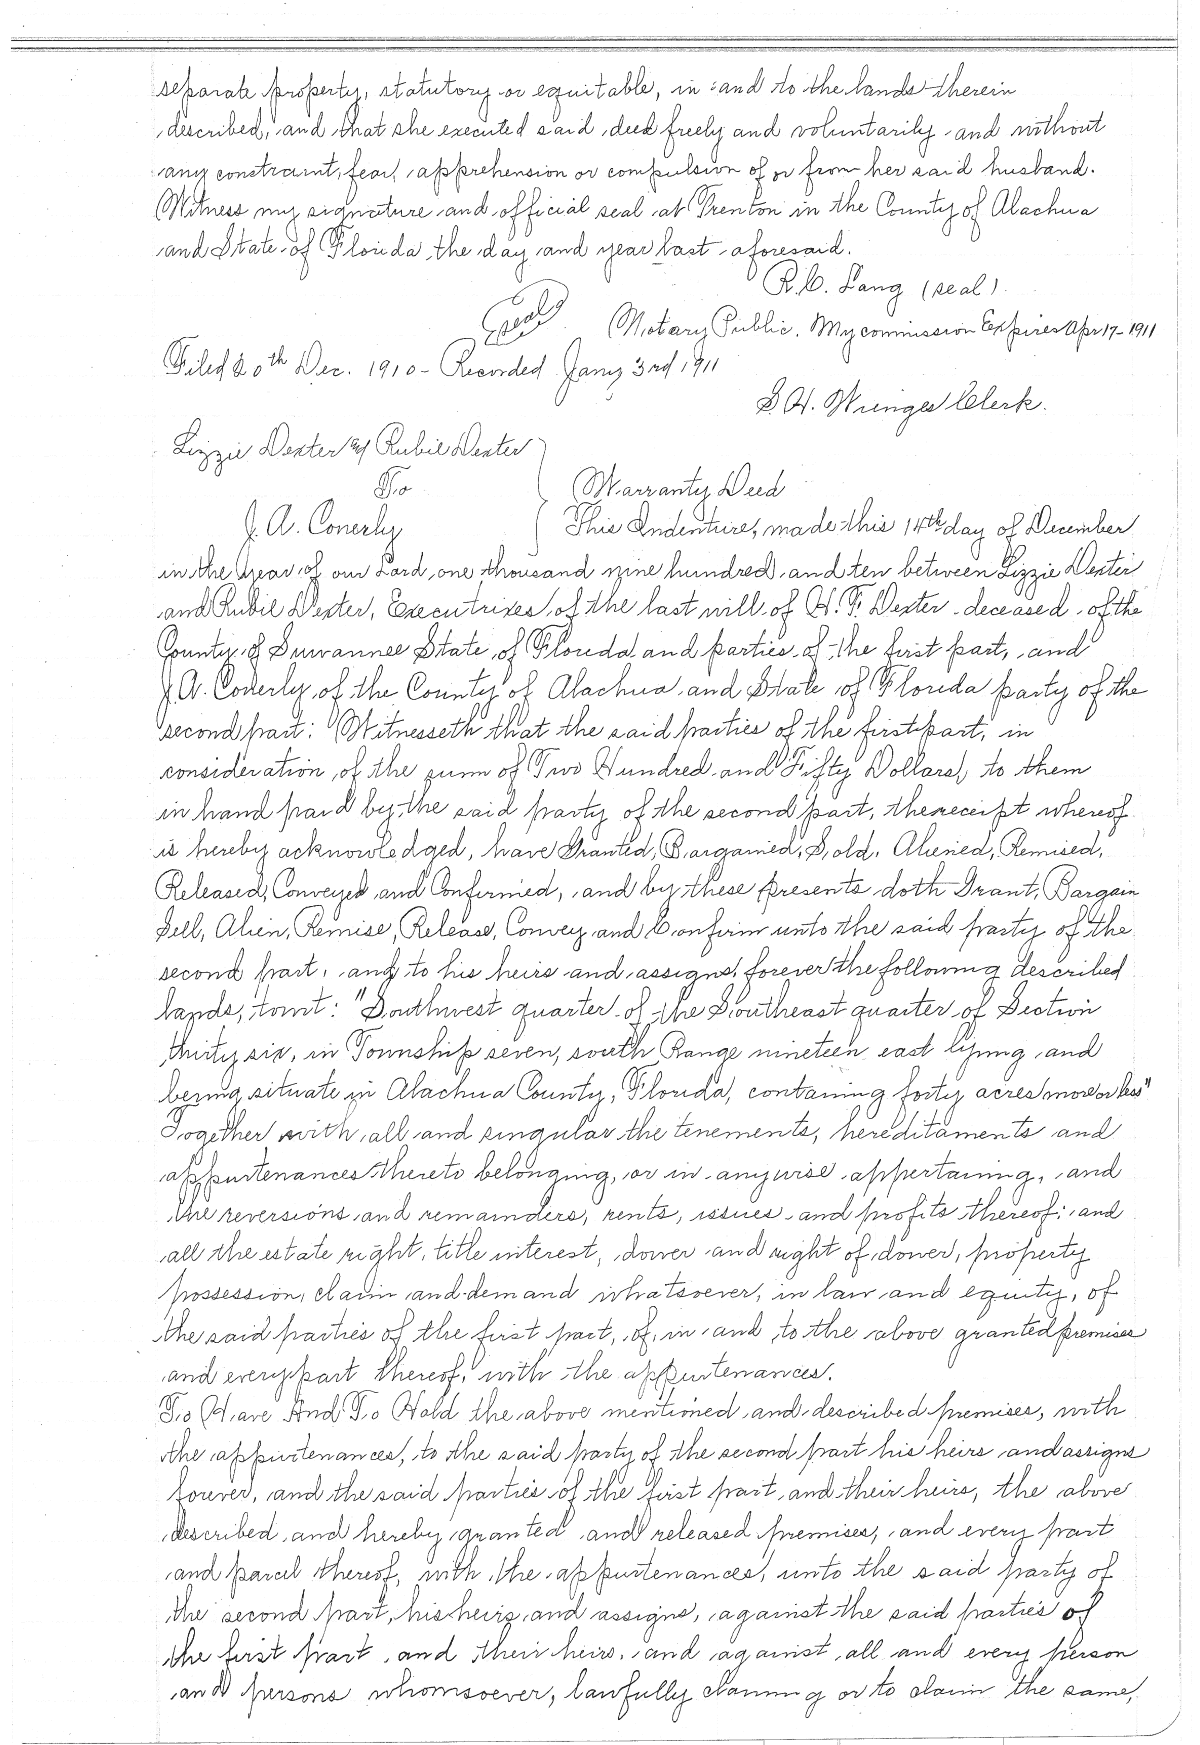 separate property, statutory or equitable, in and to the lands therein
described, and that she executed said deed freely and voluntarily and without
any constraint, fear, apprehension or compulsion of or from her said husband.
Witness my signature and official seal at Trenton in the County of Alachua
and State of Florida the day and year last aforesaid.
R.C. Lang (seal).
(Seal) Notary Public. My commission Expires Apr 17-1911
Filed 20th Dec. 1910 - Recorded Jany 3rd 1911
S.H. Wienges Clerk.
Lizzie Dexter & Rubie Dexter
To Warranty Deed
J. A. Conerly This Indenture, made this 14th day of December
in the year of our Lord, one thousand nine hundred and ten between Lizzie Dexter
and Rubie Dexter, Executrixes of the last will of H. F. Dexter deceased of the
County of Suwannee State of Florida and parties of the first part, and
J. A. Conerly of the County of Alachua and State of Florida party of the
second part: Witnesseth that the said parties of the first part, in
consideration of the sum of Two Hundred and Fifty Dollars, to them
in hand paid by the said party of the second part, the receipt whereof
is hereby acknowledged, have Granted, Bargained, Sold, Aliened, Remised,
Released, Conveyed and Confirmed, and by these presents doth Grant, Bargain
Sell, Alien, Remise, Release, Convey and Confirm unto the said party of the
second part, and to his heirs and assigns, forever the following described
lands, towit: "Southwest quarter of the Southeast quarter of Section
thirty six, in Township seven, south Range nineteen east lying and
being situate in Alachua County, Florida, containing forty acres more or less"
Together with all and singular the tenements, hereditaments and
appurtenances thereto belonging, or in anywise appertaining, and
the reversions and remainders, rents, issues and profits thereof: and
all the estate right, title interest, dower and right of dower, property
possession, claim and demand whatsoever, in law and equity, of
the said parties of the first part, of, in and to the above granted premises
and every part thereof, with the appurtenances.
To Have And To Hold the above mentioned and described premises, with
the appurtenances, to the said party of the second part his heirs and assigns
forever, and the said parties of the first part and their heirs, the above
described and hereby granted and released premises, and every part
and parcel thereof, with the appurtenances, unto the said party of
the second part, his heirs and assigns, against the said parties of
the first part and their heirs, and against all and every person
and persons whomsoever, lawfully claiming or to claim the same,